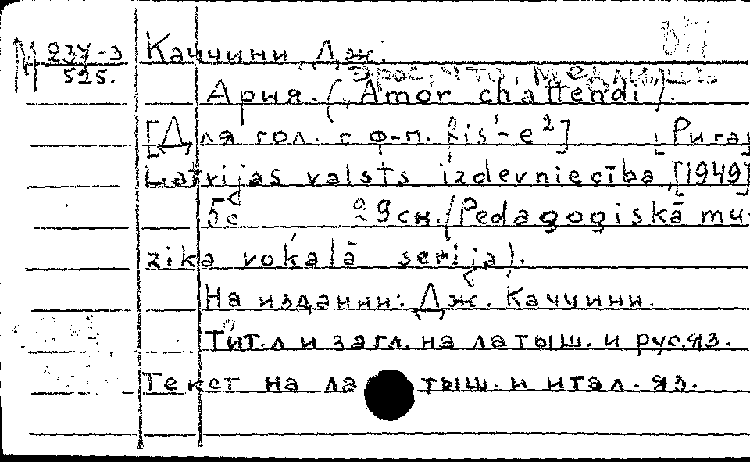 М 237-3
525.
Каччини, Дж.
Эрос, что, медлишь
Ария. ("Amor ch'attendi").
[Для гол. с ф-п. fis'-e²] [Рига]
Latvijas valsts izdevniecība, [1949]
5с 29см. (Pedagoģiskā mu-
zika vokalā serija).
На издании: Дж. Каччини.
Тит. л и загл. на латыш. и рус. яз.
Текст на латыш. и итал. яз.